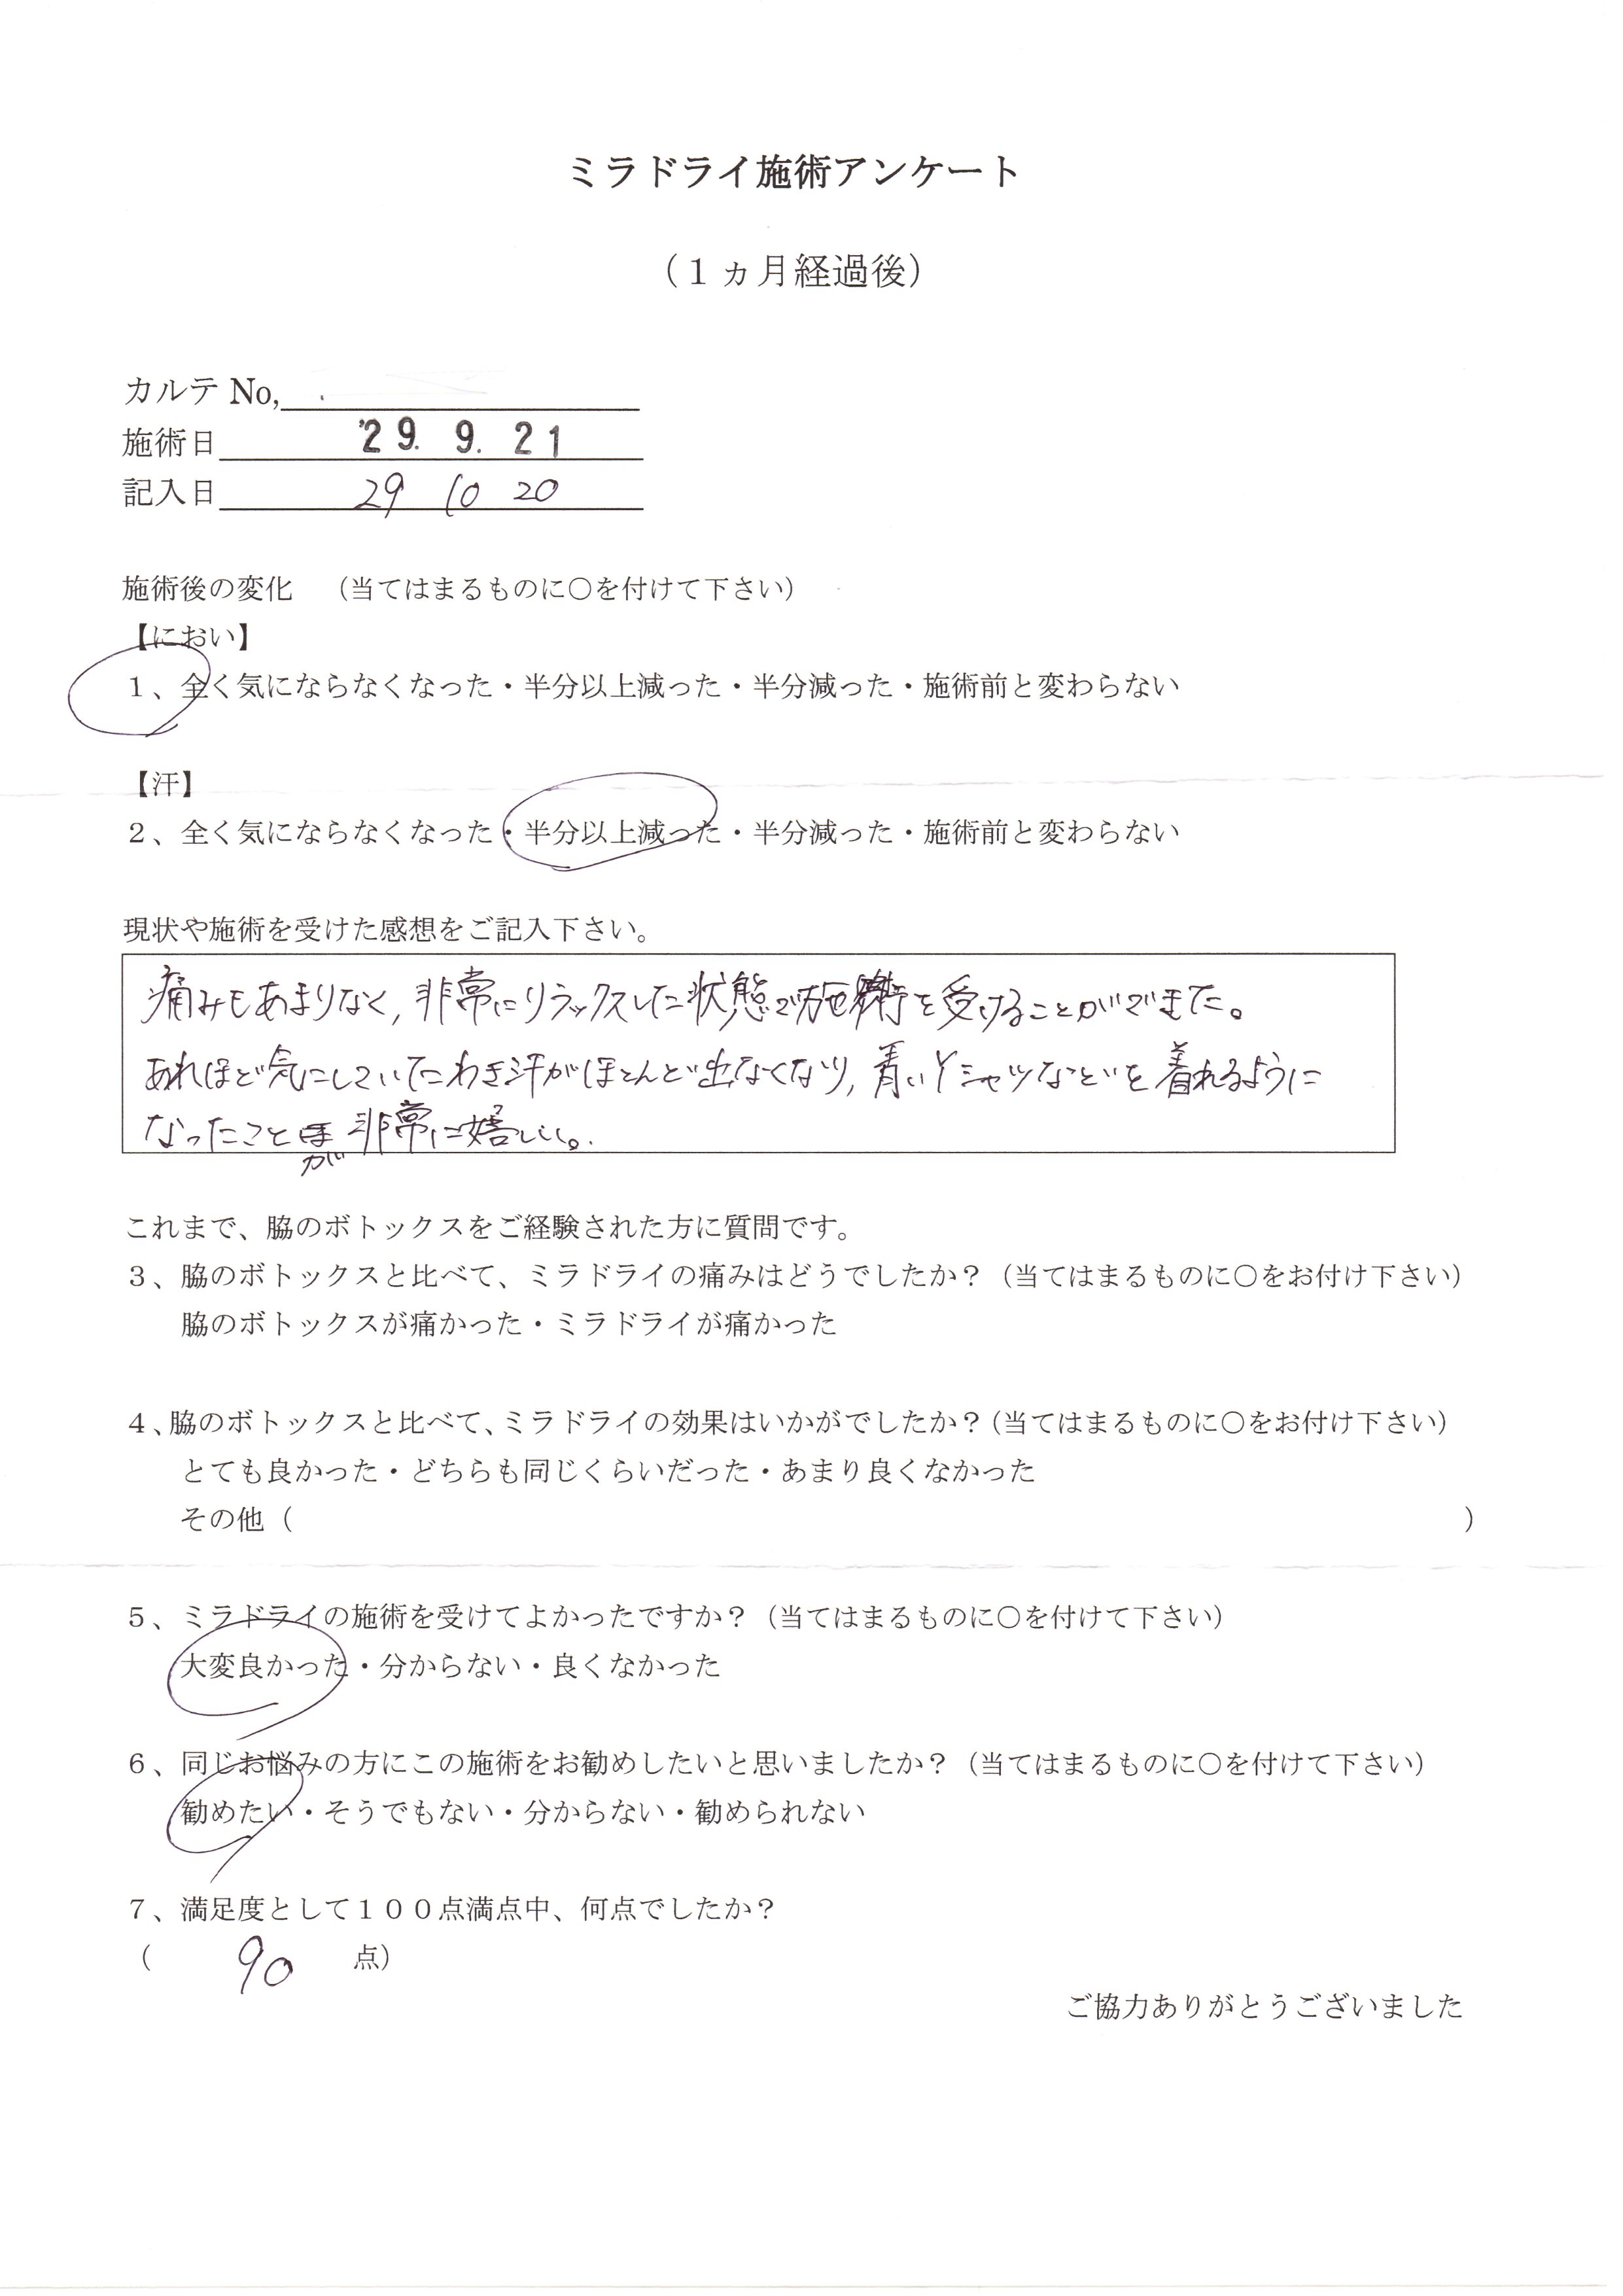 ミラドライ施術アンケート
（１ヵ月経過後）
カルテ No,
施術日 '29. 9. 21
記入日 29 10 20
施術後の変化　（当てはまるものに○を付けて下さい）
【におい】
１、全く気にならなくなった・半分以上減った・半分減った・施術前と変わらない
【汗】
２、全く気にならなくなった・半分以上減った・半分減った・施術前と変わらない
現状や施術を受けた感想をご記入下さい。
痛みもあまりなく，非常にリラックスした状態で施術を受けることができました。
あれほど気にしていたわき汗がほとんど出なくなり，青いYシャツなどを着れるように
なったことが非常に嬉しい。
これまで、脇のボトックスをご経験された方に質問です。
３、脇のボトックスと比べて、ミラドライの痛みはどうでしたか？（当てはまるものに○をお付け下さい）
脇のボトックスが痛かった・ミラドライが痛かった
４、脇のボトックスと比べて、ミラドライの効果はいかがでしたか？（当てはまるものに○をお付け下さい）
とても良かった・どちらも同じくらいだった・あまり良くなかった
その他（　　　）
５、ミラドライの施術を受けてよかったですか？（当てはまるものに○を付けて下さい）
大変良かった・分からない・良くなかった
６、同じお悩みの方にこの施術をお勧めしたいと思いましたか？（当てはまるものに○を付けて下さい）
勧めたい・そうでもない・分からない・勧められない
７、満足度として１００点満点中、何点でしたか？
（　90　点）
ご協力ありがとうございました